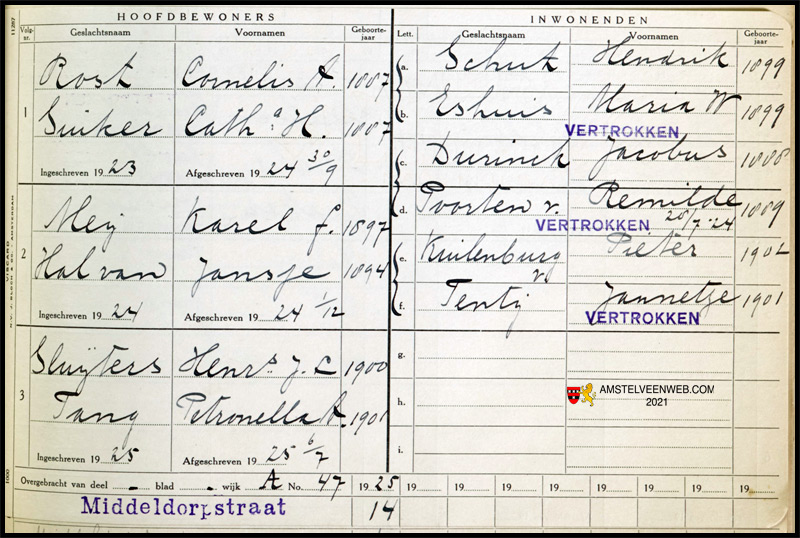 HOOFDBEWONERS
Volg-nr. Geslachtsnaam Voornamen Geboorte-jaar
1
Rost Cornelis A. 1887
Suiker Cath.a H. 1887
Ingeschreven 19 23 Afgeschreven 19 24 30/9
2
Mey Karel f. 1897
Hal van Jansje 1894
Ingeschreven 19 24 Afgeschreven 19 24 1/12
3
Sluÿters Henrs. J. C 1900
Tang Petronella A. 1901
Ingeschreven 19 25 Afgeschreven 19 25 6/7
INWONENDEN
Lett. Geslachtsnaam Voornamen Geboorte-jaar
a. Schut Hendrik 1899
b. Eshuis Maria W 1899
VERTROKKEN
c. Durinck Jacobus 1888
d. Poorten v. Remilde 1889
VERTROKKEN 20/7-24
e. Kuilenburg v. Pieter 1902
f. Tenty Jannetje 1901
VERTROKKEN
g.
h.
i.
AMSTELVEENWEB.COM
2021
Overgebracht van deel - blad - wijk A No. 47 19 25 19 19 19 19 19 19 19 19 19
Middeldorpstraat 14